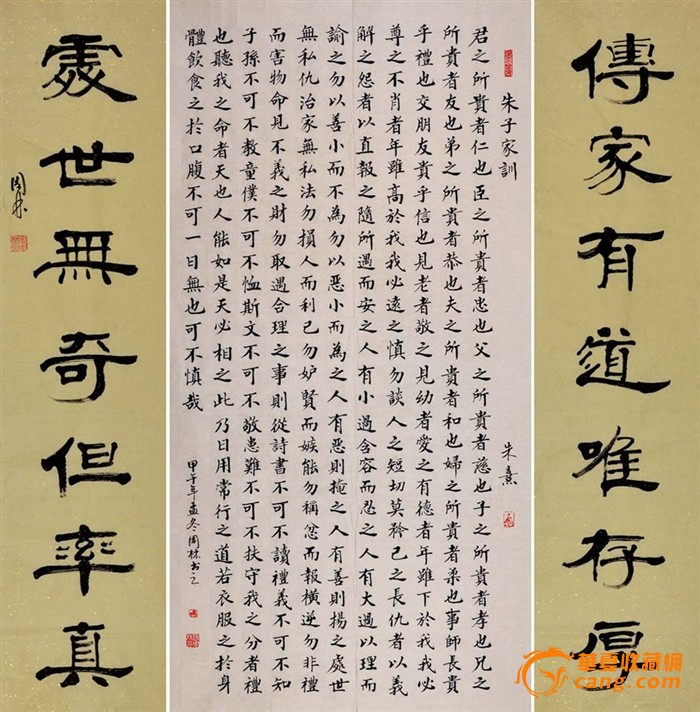 傳家有道唯存厚
朱子家訓
朱熹
君之所貴者仁也臣之所貴者忠也父之所貴者慈也子之所貴者孝也兄之
所貴者友也弟之所貴者恭也夫之所貴者和也婦之所貴者柔也事師長貴
乎禮也交朋友貴乎信也見老者敬之見幼者愛之有德者年雖下於我我必
尊之不肖者年雖高於我我必遠之慎勿談人之短切莫矜己之長仇者以義
解之怨者以直報之隨所遇而安之人有小過含容而忍之人有大過以理而
諭之勿以善小而不為勿以惡小而為之人有惡則掩之人有善則揚之處世
無私仇治家無私法勿損人而利己勿妒賢而嫉能勿稱忿而報橫逆勿非禮
而害物命見不義之財勿取遇合理之事則從詩書不可不讀禮義不可不知
子孫不可不教童僕不可不恤斯文不可不敬患難不可不扶守我之分者禮
也聽我之命者天也人能如是天必相之此乃日用常行之道若衣服之於身
體飲食之於口腹不可一日無也可不慎哉
甲午年孟冬周林书之
處世無奇但率真
周林
華夏收藏網
cang.com